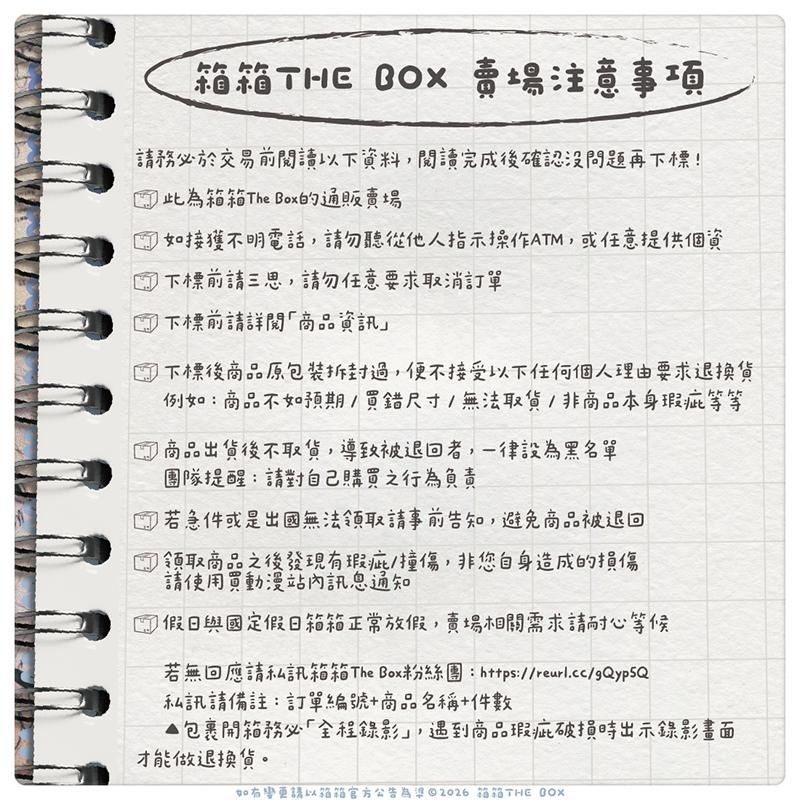 箱箱THE BOX 賣場注意事項
請務必於交易前閱讀以下資料，閱讀完成後確認沒問題再下標！
此為箱箱The Box的通販賣場
如接獲不明電話，請勿聽從他人指示操作ATM，或任意提供個資
下標前請三思，請勿任意要求取消訂單
下標前請詳閱「商品資訊」
下標後商品原包裝拆封過，便不接受以下任何個人理由要求退換貨
例如：商品不如預期 / 買錯尺寸 / 無法取貨 / 非商品本身瑕疵等等
商品出貨後不取貨，導致被退回者，一律設為黑名單
團隊提醒：請對自己購買之行為負責
若急件或是出國無法領取請事前告知，避免商品被退回
領取商品之後發現有瑕疵/撞傷，非您自身造成的損傷
請使用買動漫站內訊息通知
假日與國定假日箱箱正常放假，賣場相關需求請耐心等候
若無回應請私訊箱箱The Box粉絲團：https://reurl.cc/gQyp5Q
私訊請備註：訂單編號+商品名稱+件數
▲包裹開箱務必「全程錄影」，遇到商品瑕疵破損時出示錄影畫面
才能做退換貨。
如有變更請以箱箱官方公告為準©2026 箱箱THE BOX